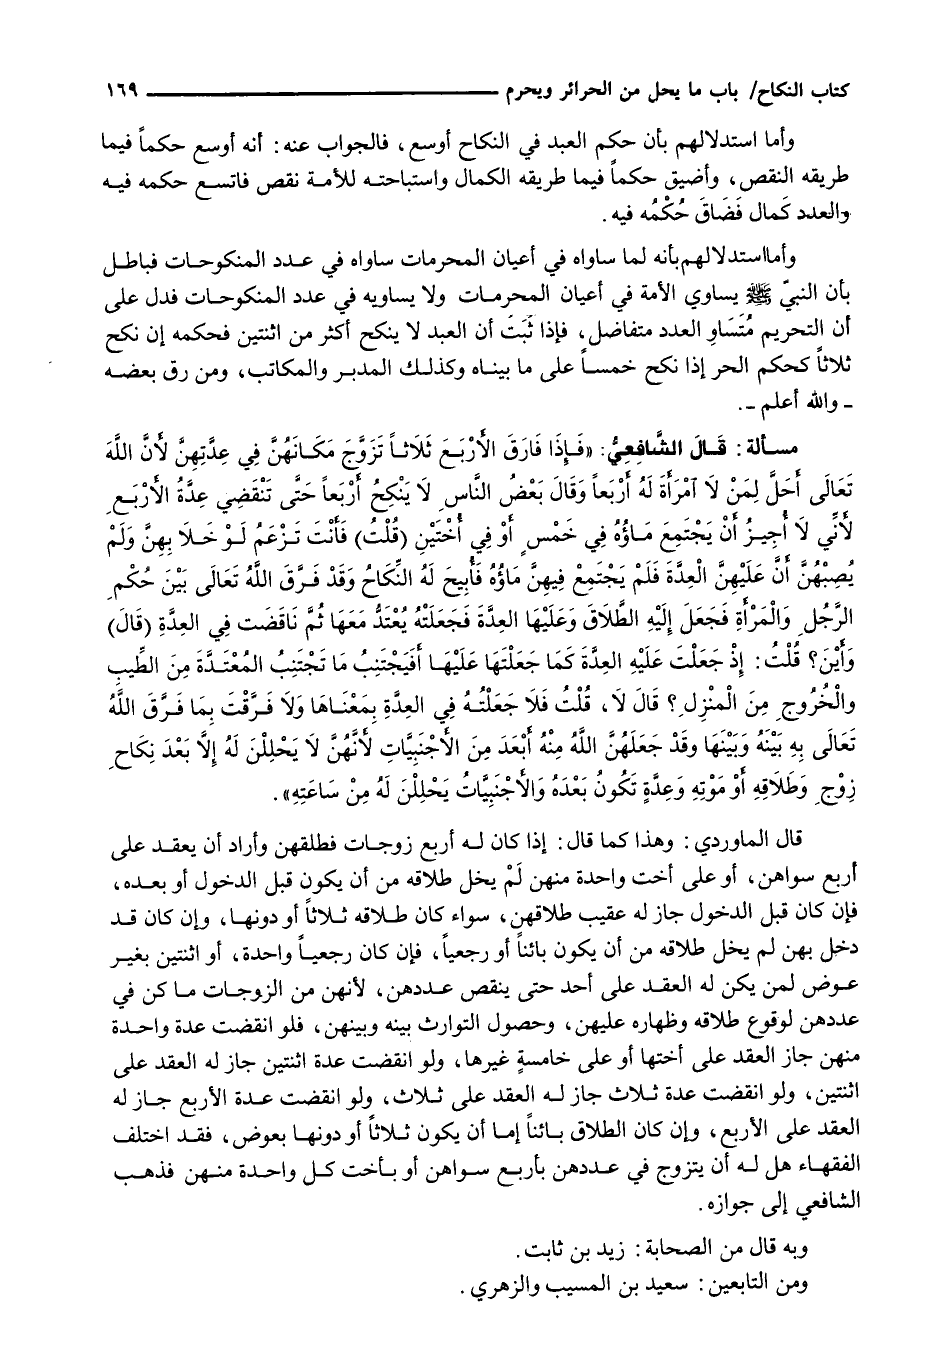 كتاب النكاح/ باب ما يحل من الحرائر ويحرم ١٦٩
وأما استدلالهم بأن حكم العبد في النكاح أوسع، فالجواب عنه: أنه أوسع حكماً فيما
طريقه النقص، وأضيق حكماً فيما طريقه الكمال واستباحته للأمة نقص فاتسع حكمه فيه
والعدد كَمال فَضَاقَ حُكْمُه فيه.
وأمااستدلالهم بأنه لما ساواه في أعيان المحرمات ساواه في عدد المنكوحات فباطل
بأن النبيّ ﷺ يساوي الأمة في أعيان المحرمات ولا يساويه في عدد المنكوحات فدل على
أن التحريم مُتَسَاوِ العدد متفاضل، فإذا ثَبَتَ أن العبد لا ينكح أكثر من اثنتين فحكمه إن نكح
ثلاثاً كحكم الحر إذا نكح خمساً على ما بيناه وكذلك المدبر والمكاتب، ومن رق بعضه
ـ والله أعلم ـ.
مسألة: قَالَ الشَّافِعِيُّ: «فَإِذَا فَارَقَ الأَرْبَعَ ثَلَاثاً تَزَوَّجَ مَكَانَهُنَّ فِي عِدَّتِهِنَّ لأَنَّ اللَّهَ
تَعَالَى أَحَلَّ لِمَنْ لَا آمْرَأَةَ لَهُ أَرْبَعاً وَقَالَ بَعْضُ النَّاسِ لَا يَنْكِحُ أَرْبَعاً حَتَّى تَنْقَضِي عِدَّةُ الأَرْبَعِ
لأَنِّي لَا أُجِيزُ أَنْ يَجْتَمِعَ مَاؤُهُ فِي خَمْسٍ أَوْ فِي أُخْتَيْنِ (قُلْتُ) فَأَنْتَ تَزْعَمُ لَوْ خَلَا بِهِنَّ وَلَمْ
يُصِبْهُنَّ أَنَّ عَلَيْهِنَّ الْعِدَّةَ فَلَمْ يَجْتَمِعْ فِيهِنَّ مَاؤُهُ فَأُبِيحَ لَهُ النِّكَاحُ وَقَدْ فَرَّقَ اللَّهُ تَعَالَى بَيْنَ حُكْمِ
الرَّجُلِ وَالْمَرْأَةِ فَجَعَلَ إِلَيْهِ الطَّلَاقَ وَعَلَيْهَا العِدَّةَ فَجَعَلْتَهُ يُعْتَدُّ مَعَهَا ثُمَّ نَاقَضْتَ فِي العِدَّةِ (قَالَ)
وَأَيْنَ؟ قُلْتُ: إِذْ جَعَلْتَ عَلَيْهِ العِدَّةَ كَمَا جَعَلْتَهَا عَلَيْهَا أَفَيَجْتَنِبُ مَا تَجْتَنِبُ المُعْتَدَّةَ مِنَ الطِّيبِ
والْخُرُوجِ مِنَ الْمَنْزِلِ؟ قَالَ لَا، قُلْتُ فَلَا جَعَلْتَهُ فِي العِدَّةِ بِمَعْنَاهَا وَلَا فَرَّقْتَ بِمَا فَرَّقَ اللَّهُ
تَعَالَى بِهِ بَيْنَهُ وَبَيْنَهَا وقَدْ جَعَلَهُنَّ اللَّهُ مِنْهُ أَبْعَدَ مِنَ الأَجْنَبِيَّاتِ لأَنَّهُنَّ لَا يَحْلِلْنَ لَهُ إِلَّا بَعْدَ نِكَاحِ
زِوْجٍ وَطَلَاقِهِ أَوْ مَوْتِهِ وَعِدَّةٍ تَكُونُ بَعْدَهُ وَالأَجْنَبِيَّاتُ يَحْلِلْنَ لَهُ مِنْ سَاعَتِهِ».
قال الماوردي: وهذا كما قال: إذا كان له أربع زوجات فطلقهن وأراد أن يعقد على
أربع سواهن، أو على أخت واحدة منهن لَمْ يخل طلاقه من أن يكون قبل الدخول أو بعده،
فإن كان قبل الدخول جاز له عقيب طلاقهن، سواء كان طلاقه ثلاثاً أو دونها، وإن كان قد
دخل بهن لم يخل طلاقه من أن يكون بائناً أو رجعياً، فإن كان رجعياً واحدة، أو اثنتين بغير
عوض لمن يكن له العقد على أحد حتى ينقص عددهن، لأنهن من الزوجات ما كن في
عددهن لوقوع طلاقه وظهاره عليهن، وحصول التوارث بينه وبينهن، فلو انقضت عدة واحدة
منهن جاز العقد على أختها أو على خامسةٍ غيرها، ولو انقضت عدة اثنتين جاز له العقد على
اثنتين، ولو انقضت عدة ثلاث جاز له العقد على ثلاث، ولو انقضت عدة الأربع جاز له
العقد على الأربع، وإن كان الطلاق بائناً إما أن يكون ثلاثاً أو دونها بعوض، فقد اختلف
الفقهاء هل له أن يتزوج في عددهن بأربع سواهن أو بأخت كل واحدة منهن فذهب
الشافعي إلى جوازه.
وبه قال من الصحابة: زيد بن ثابت.
ومن التابعين: سعيد بن المسيب والزهري.